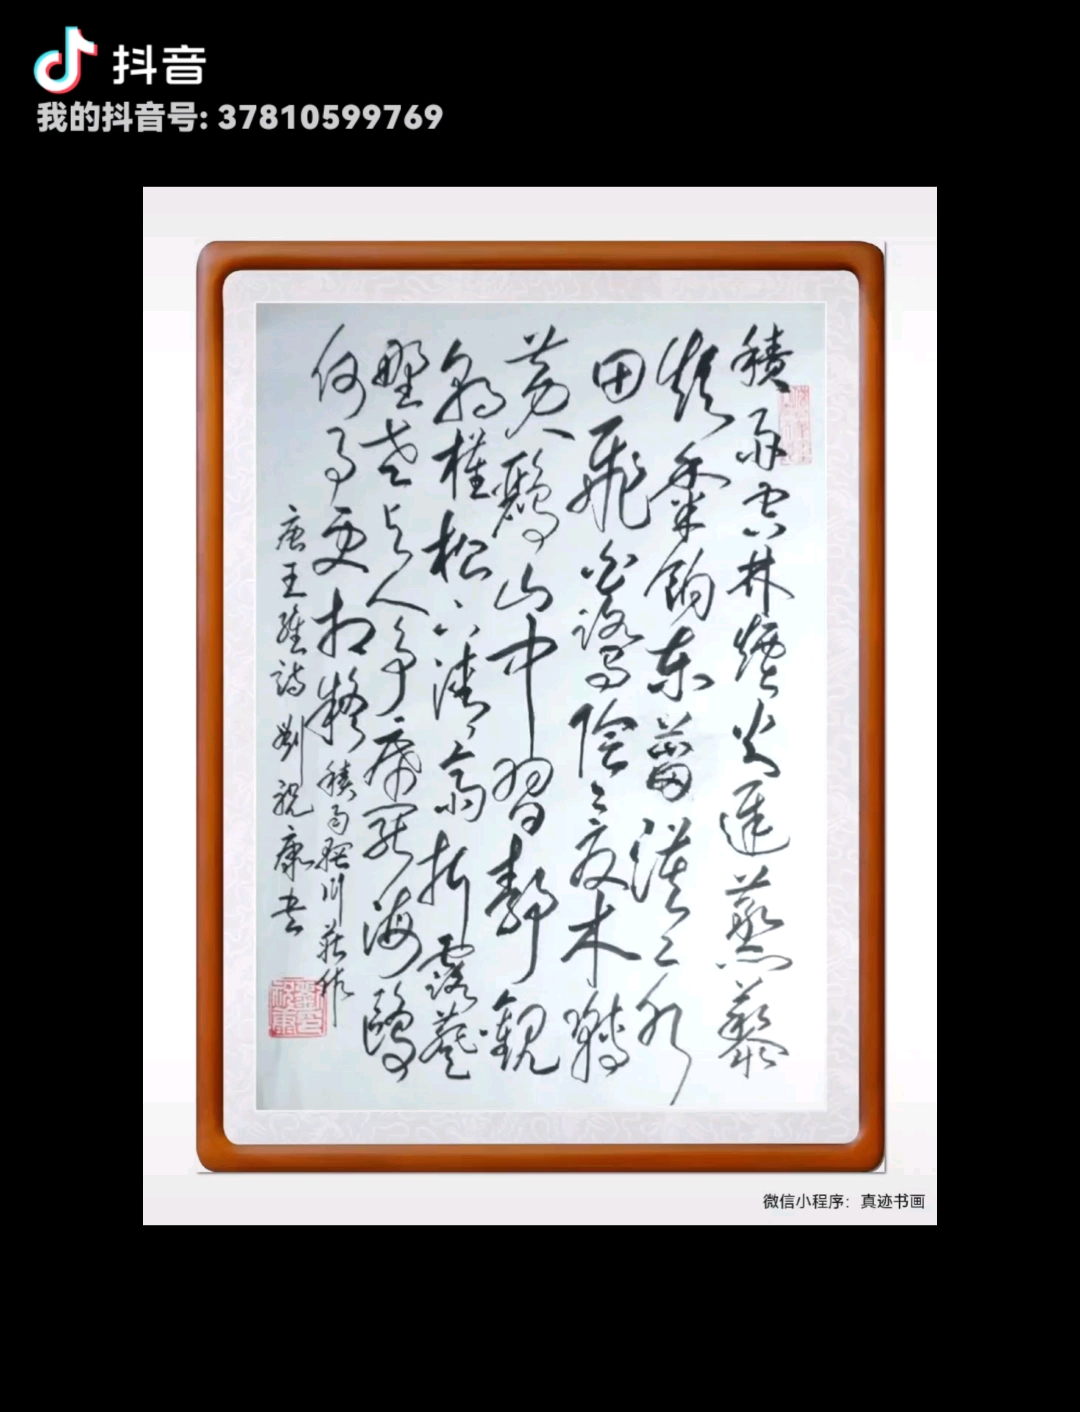 抖音
我的抖音号: 37810599769
積雨空林煙火遲蒸藜
炊黍餉東菑漠々水
田飛白鷺陰々夏木囀
黄鸝山中習靜觀
朝槿松下清齋折露葵
野老與人爭席罷海鷗
何事更相疑積雨輞川莊作
唐王維詩劉祝康书
微信小程序：真迹书画